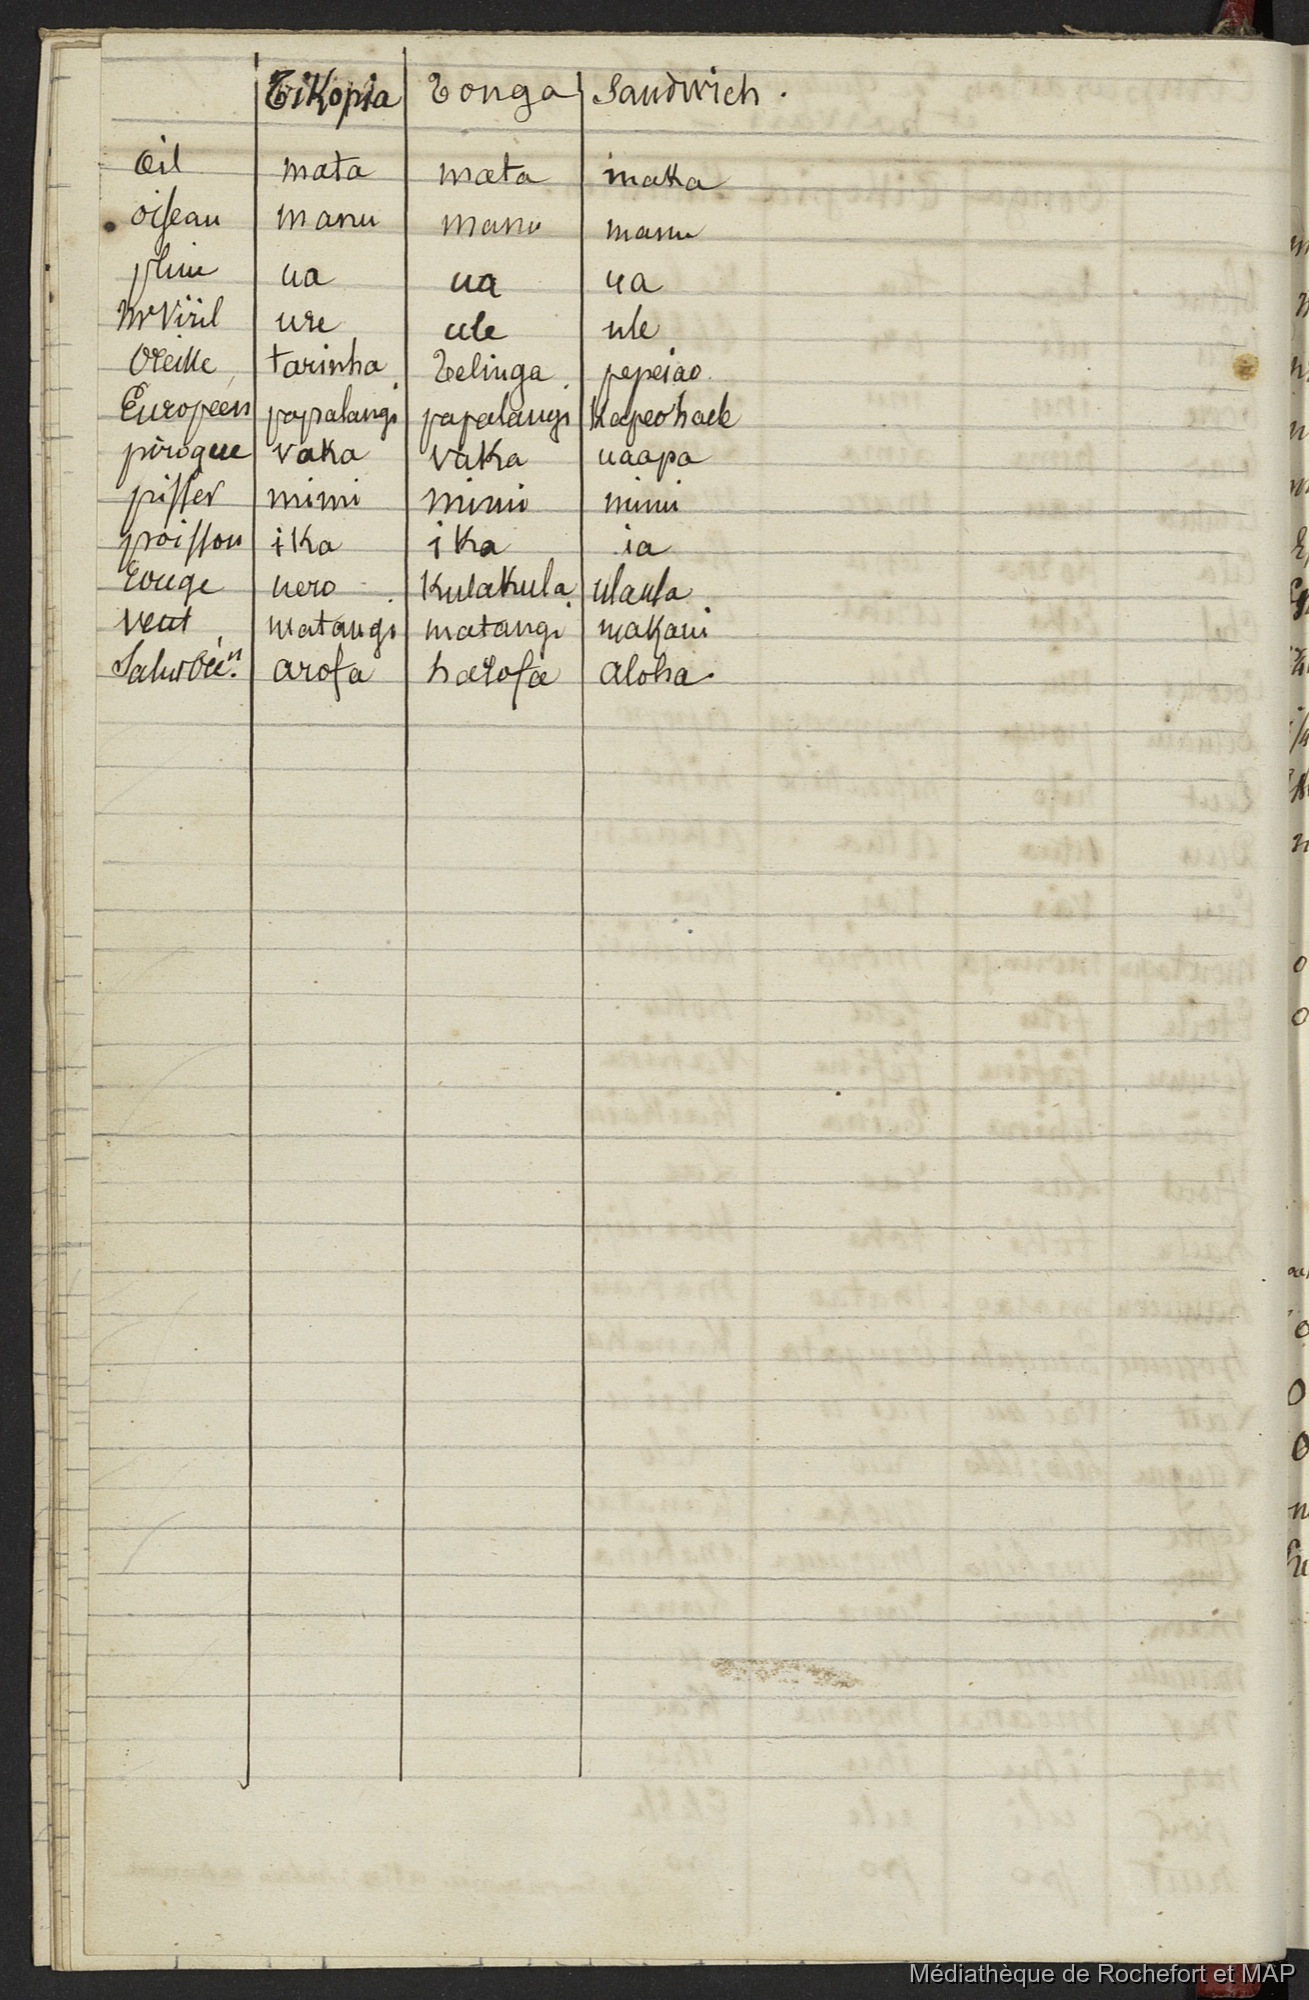 Tikopia Tonga Sandwich.
Œil mata mata maka
oiseau manu manu manu
pluie ua ua ua
mr viril ure ule ule
Oreille tarinha Telinga pepeiao
Européen papalangi papalangi
pirogue vaka vaka uaapa
pisser mimi mimi mimi
poisson ika ika ia
Rouge uero kulakula ulaula
vent matangi matangi makani
arofa harofa aloha.
Médiathèque de Rochefort et MAP